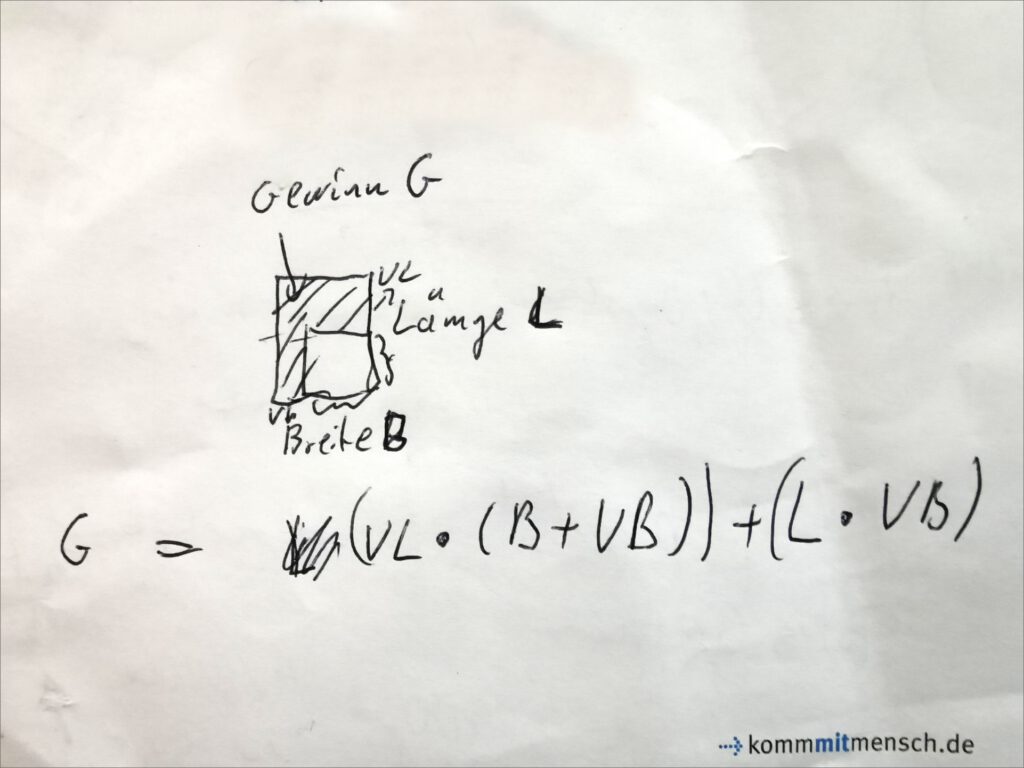 Gewinn G
VL
Länge L
VB
Breite B
G = (VL · (B + VB)) + (L · VB)
kommmitmensch.de